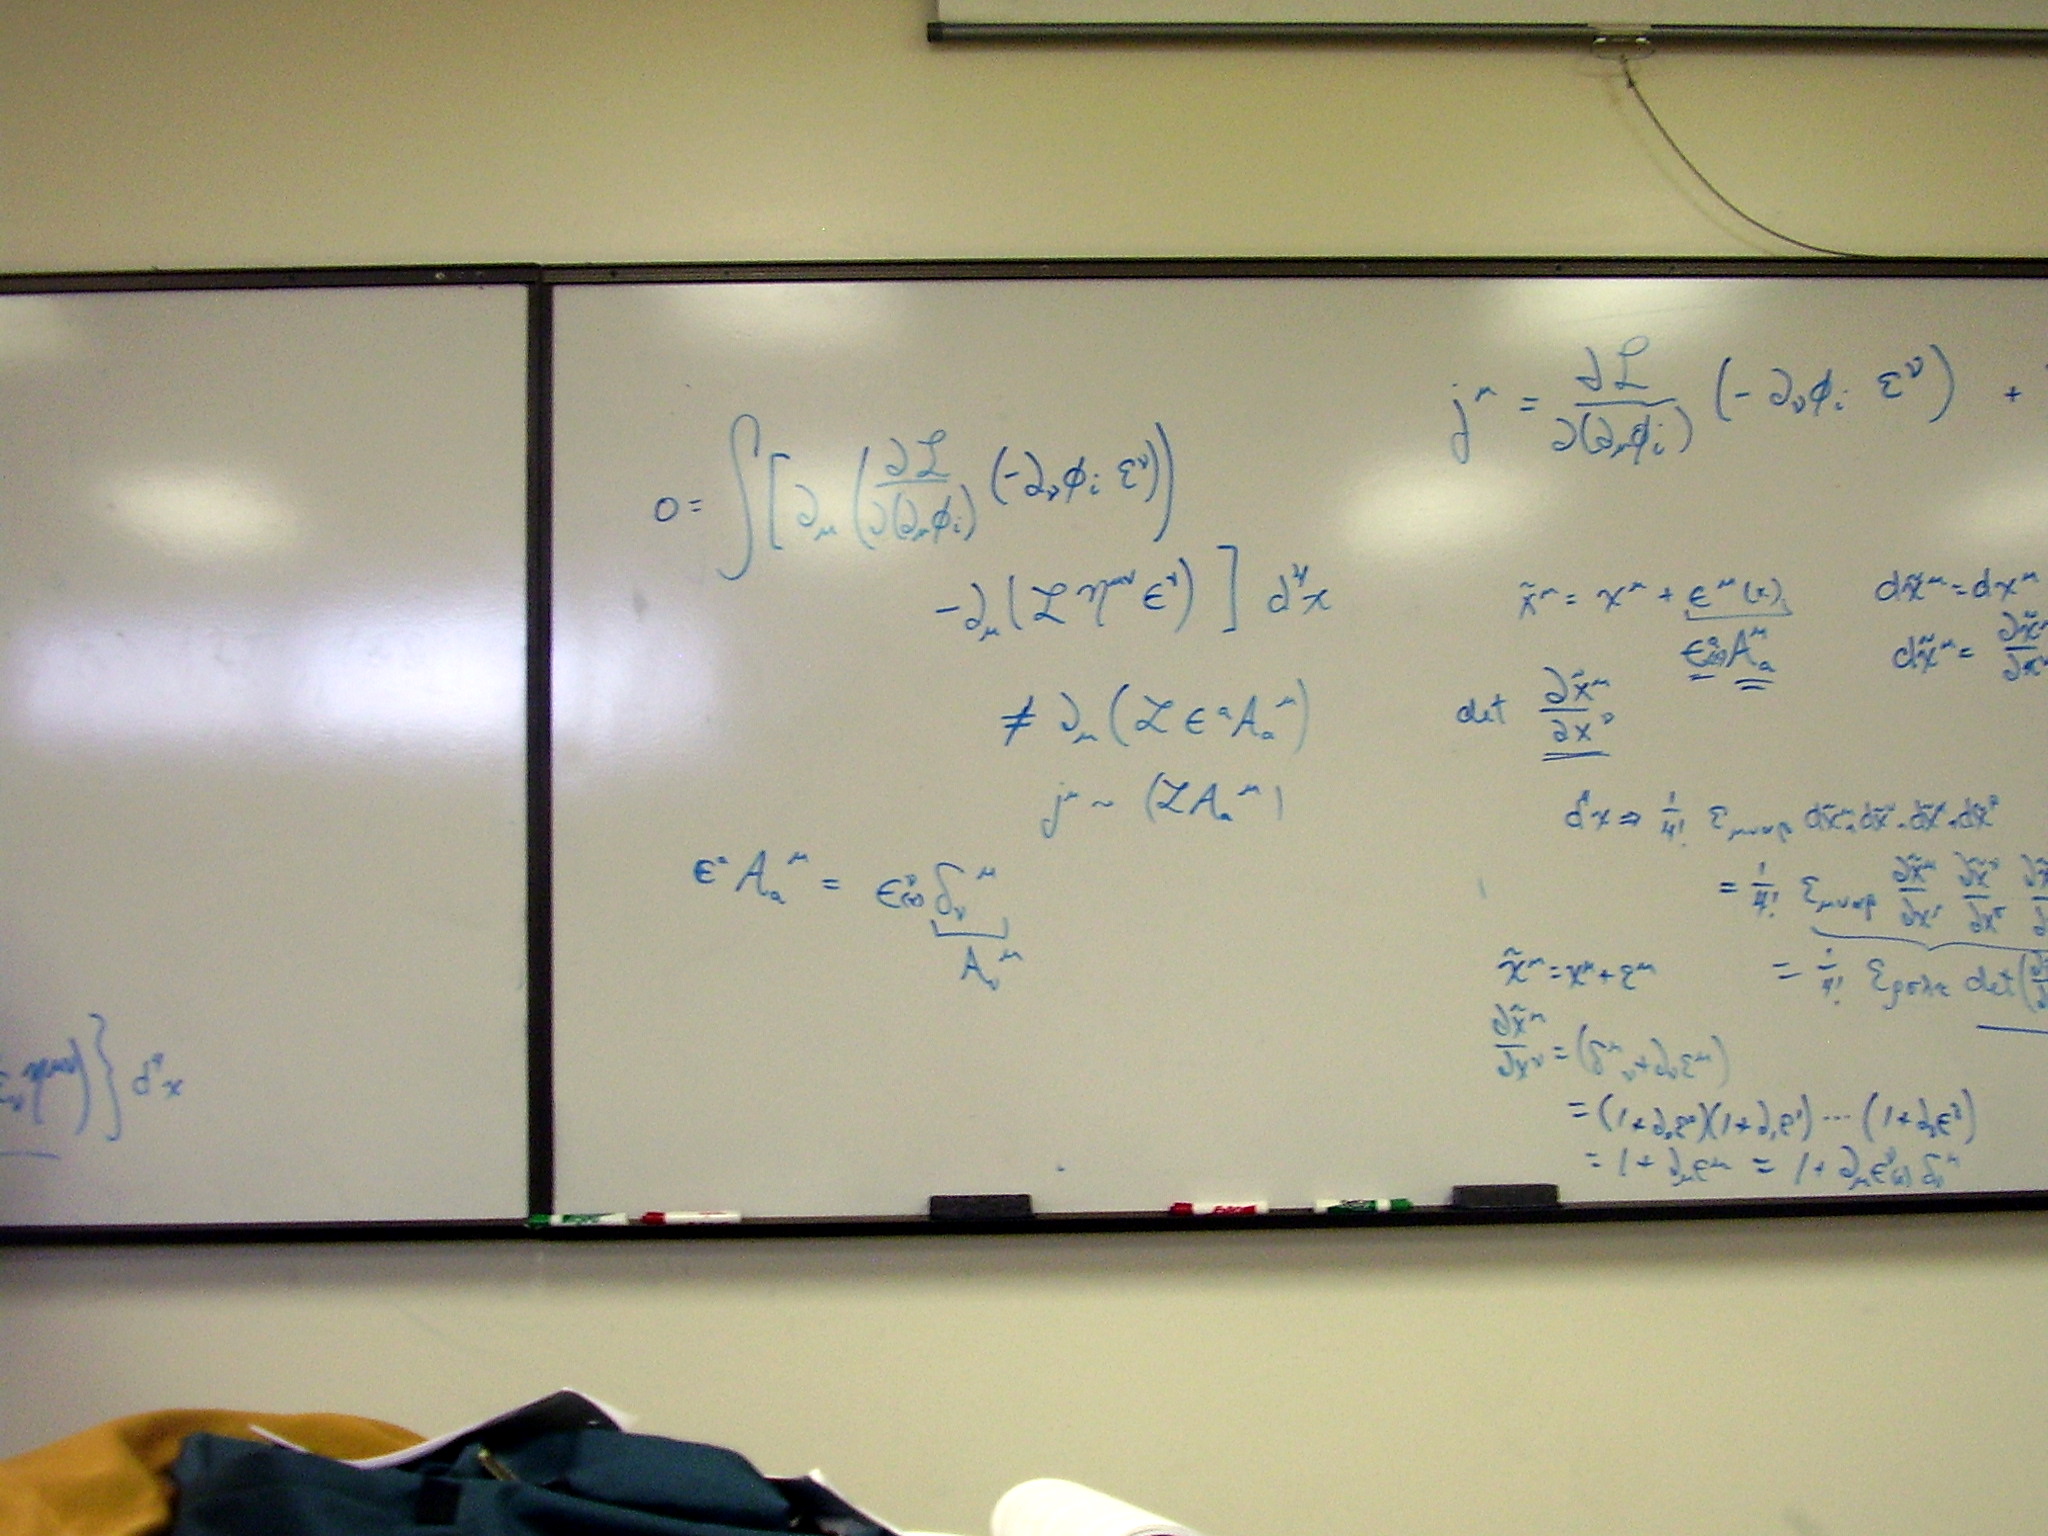 εᵥη^{μν})} d⁴x
0 = ∫[∂_μ (∂ℒ/∂(∂_μφ_i) (-∂_νφ_i ε^ν))
-∂_μ(ℒ η^{μν} ε^ν)] d⁴x
≠ ∂_μ(ℒ ε^a A_a^μ)
j^μ ~ (ℒ A_a^μ)
ε^a A_a^μ = ε^ν(x) δ_ν^μ
A_ν^μ
j^μ = ∂ℒ/∂(∂_μφ_i) (-∂_νφ_i ε^ν) +
x̃^μ = x^μ + ε^μ(x) dx̃^μ = dx^μ
ε^a(x) A_a^μ dx̃^μ = ∂x̃^μ
det ∂x̃^μ/∂x^ν
d⁴x ⇒ 1/4! ε_{μναβ} dx̃^μ∧dx̃^ν∧dx̃^α∧dx̃^β
= 1/4! ε_{μναβ} ∂x̃^μ/∂x^ρ ∂x̃^ν/∂x^σ
x̃^μ = x^μ + ε^μ = 1/4! ε_{ρσλκ} det(
∂x̃^μ/∂x^ν = (δ^μ_ν + ∂_νε^μ)
= (1+∂₀ε⁰)(1+∂₁ε¹) ... (1+∂₃ε³)
= 1 + ∂_με^μ = 1 + ∂_με^ν(x) δ_ν^μ